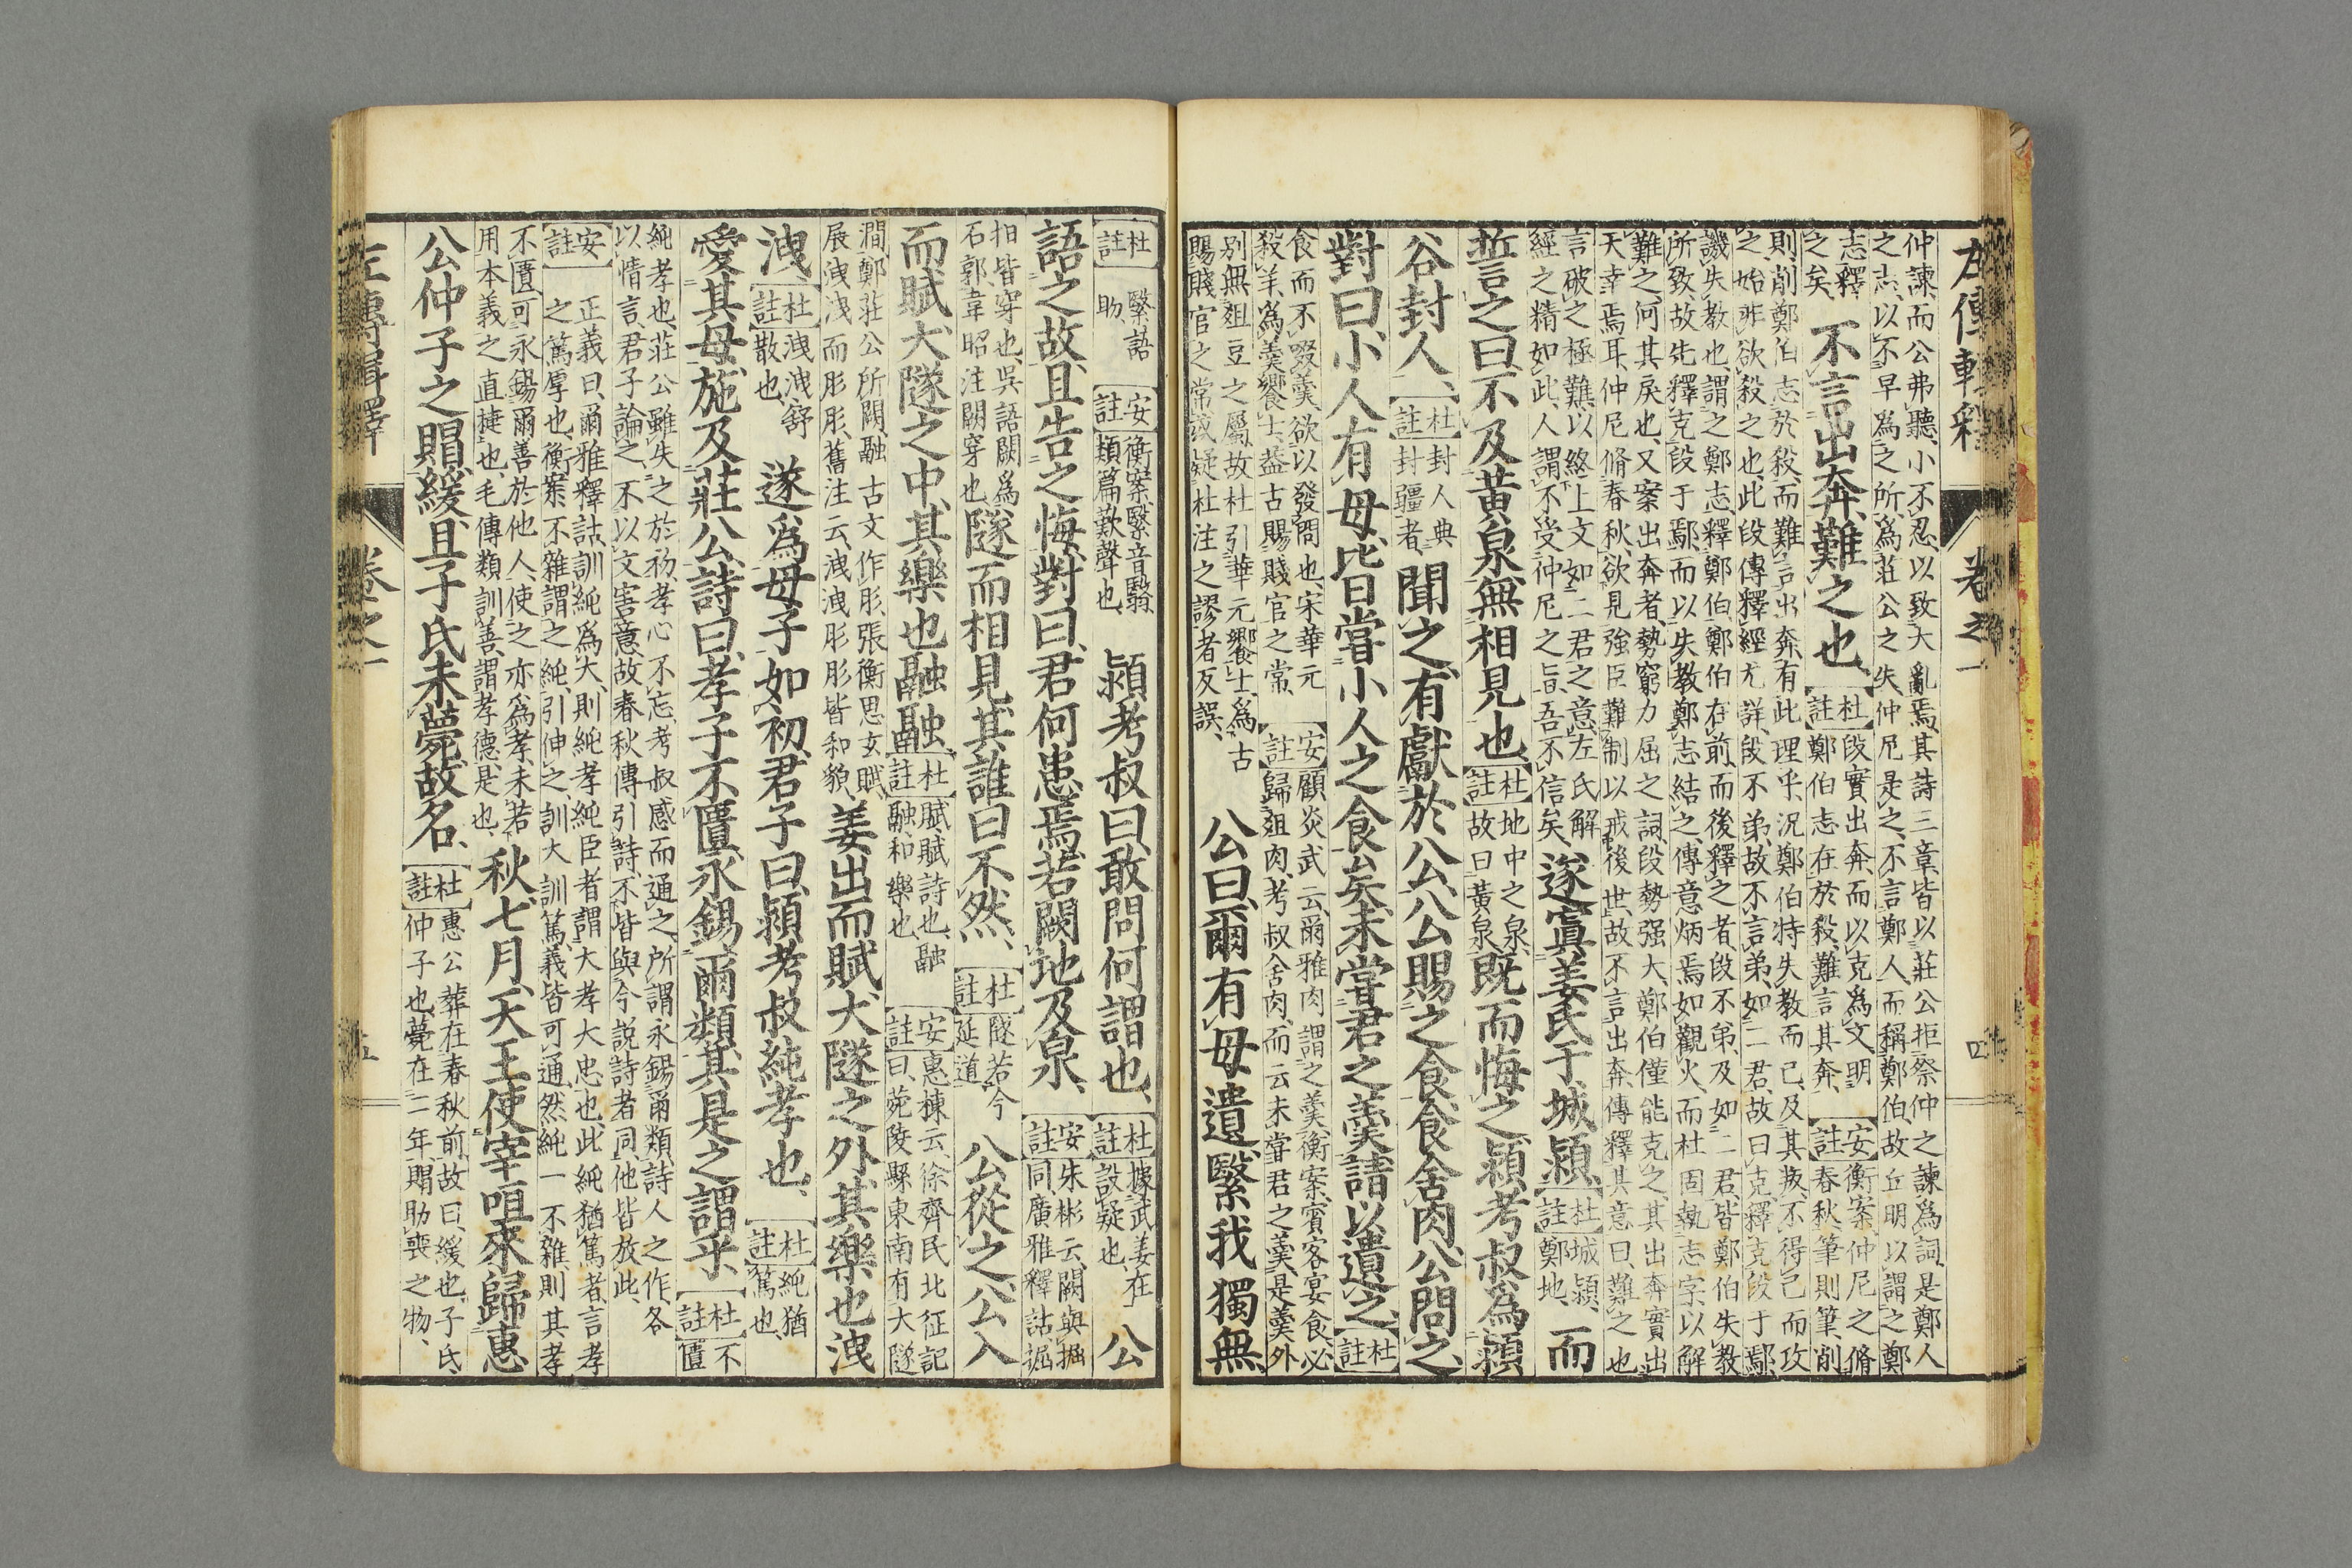 左傳輯釋　卷之一　四
仲諫、而公弗聽、小不忍、以致大亂焉、其詩三章、皆以莊公拒祭仲之諫爲詞、是鄭人
之志、以不早爲之所、爲莊公之失、仲尼是之、不言鄭人、而稱鄭伯、故丘明以謂之鄭
志釋之矣、不言出奔、難之也、杜註段實出奔、而以克爲文、明鄭伯志在於殺、難言其奔、安註衡案、仲尼之脩春秋、筆則筆、削
則削、鄭伯志於殺、而難言出奔、有此理乎、況鄭伯特失教而已、及其叛、不得已而攻
之、始非欲殺之也、此段傳釋經尤詳、段不弟、故不言弟、如二君、故曰克、釋克段于鄢、
譏失教也、謂之鄭志、釋鄭伯、鄭伯在前、而後釋之者、段不弟、及如二君、皆鄭伯失教
所致、故先釋克段于鄢、而以失教鄭志結之、傳意炳焉如觀火、而杜固執志字、以解
難之、何其戾也、又案出奔者、勢窮力屈之詞、段勢强大、鄭伯僅能克之、其出奔實出
天幸焉耳、仲尼脩春秋、欲見強臣難制、以戒後世、故不言出奔、傳釋其意曰、難之也
言破之極難、以終上文如二君之意、左氏解經之精如此、人謂不受仲尼之旨、吾不信矣、遂寘姜氏于城潁、杜註城潁、鄭地、而
誓之曰、不及黃泉、無相見也、杜註地中之泉、故曰黃泉、既而悔之、潁考叔爲潁
谷封人、杜註封人、典封疆者、聞之、有獻於公、公賜之食、食舍肉、公問之、
對曰、小人有母、皆嘗小人之食矣、未嘗君之羹、請以遺之、杜註
食而不啜羹、欲以發問也、宋華元殺羊、爲羹饗士、蓋古賜賤官之常、安註顧炎武云、爾雅肉謂之羹、衡案、賓客宴食、必歸俎肉、考叔舍肉、而云未嘗君之羹、是羹外
別無俎豆之屬、故杜引華元饗士、爲古賜賤官之常、或疑杜注之謬者反誤、公曰、爾有母遺、繄我獨無、
杜註繄、語助、安註衡案、繄音翳、類篇、歎聲也、潁考叔曰、敢問何謂也、杜註據武姜在、設疑也、公
語之故、且告之悔、對曰、君何患焉、若闕地及泉、安註朱彬云、闕與掘同、廣雅釋詁、掘
抇皆穿也、吳語闕爲石郭、韋昭注、闕穿也、隧而相見、其誰曰不然、杜註隧若今延道、公從之、公入
而賦、大隧之中、其樂也融融、杜註賦、賦詩也、融融、和樂也、安註惠棟云、徐齊民北征記曰、菀陵縣東南有大隧
澗、鄭莊公所闕、融古文作肜、張衡思玄賦、展洩洩而肜肜、舊注云、洩洩肜肜、皆和貌、姜出而賦、大隧之外、其樂也洩
洩、杜註洩洩、舒散也、遂爲母子如初、君子曰、潁考叔純孝也、杜註純猶篤也、
愛其母、施及莊公、詩曰、孝子不匱、永錫爾類、其是之謂乎、杜註不匱
純孝也、莊公雖失之於初、孝心不忘、考叔感而通之、所謂永錫爾類、詩人之作、各
以情言、君子論之、不以文害意、故春秋傳引詩、不皆與今說詩者同、他皆放此、
安註正義曰、爾雅釋詁、訓純爲大、則純孝純臣者、謂大孝大忠也、此純猶篤者、言孝之篤厚也、衡案、不雜謂之純、引伸之、訓大訓篤、義皆可通、然純一不雜、則其孝
不匱、可永錫爾善於他人、使之亦爲孝、未若用本義之直捷也、毛傳類訓善、謂孝德、是也、秋、七月、天王使宰咺來歸惠
公仲子之賵、緩、且子氏未薨、故名、杜註惠公葬在春秋前、故曰緩也、子氏、仲子也、薨在二年、賵、助喪之物、
左傳輯釋　卷之一　五